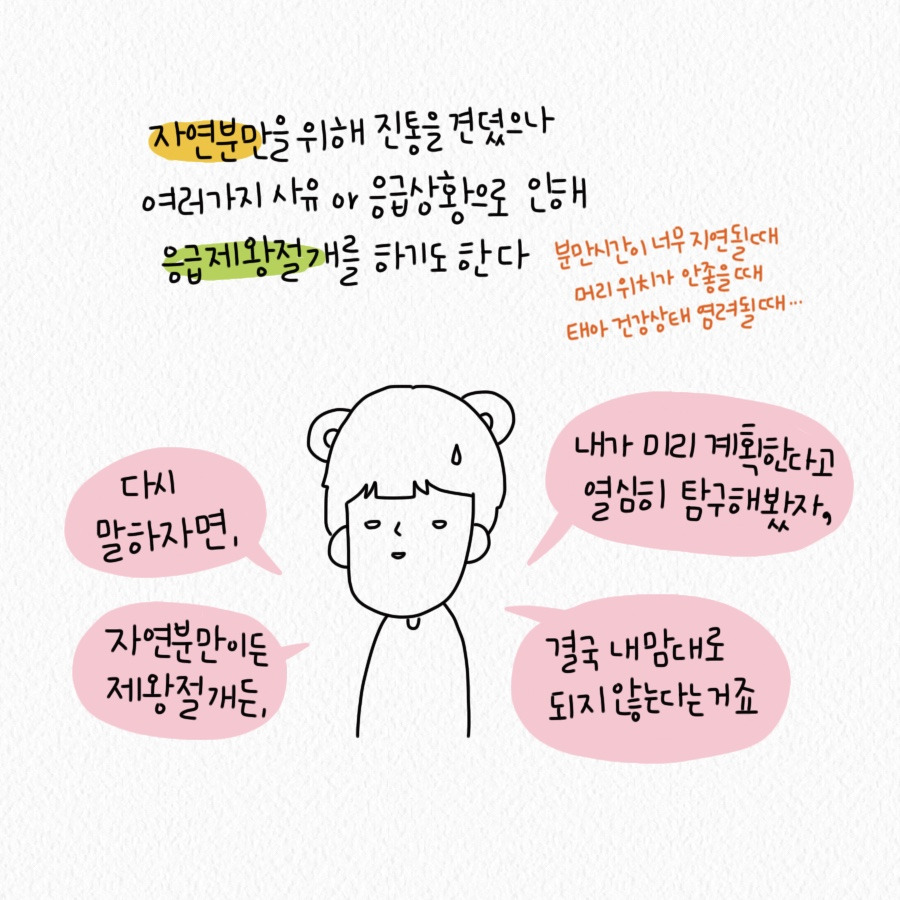 자연분만을 위해 진통을 견뎠으나
여러가지 사유 or 응급상황으로 인해
응급제왕절개를 하기도 한다
분만시간이 너무 지연될때
머리 위치가 안좋을때
태아 건강상태 염려될때...
다시
말하자면,
자연분만이든
제왕절개든,
내가 미리 계획한다고
열심히 탐구해봤자,
결국 내맘대로
되지 않는다는거죠